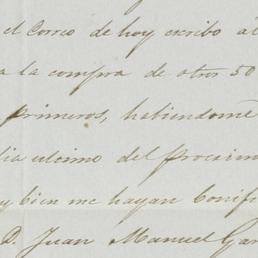 el Correo de hoy escribo al
a la compra de otros 50
primeros, habiendome
dia ultimo del procsimo
y bien me hayan bonifi
D. Juan Manuel Gar